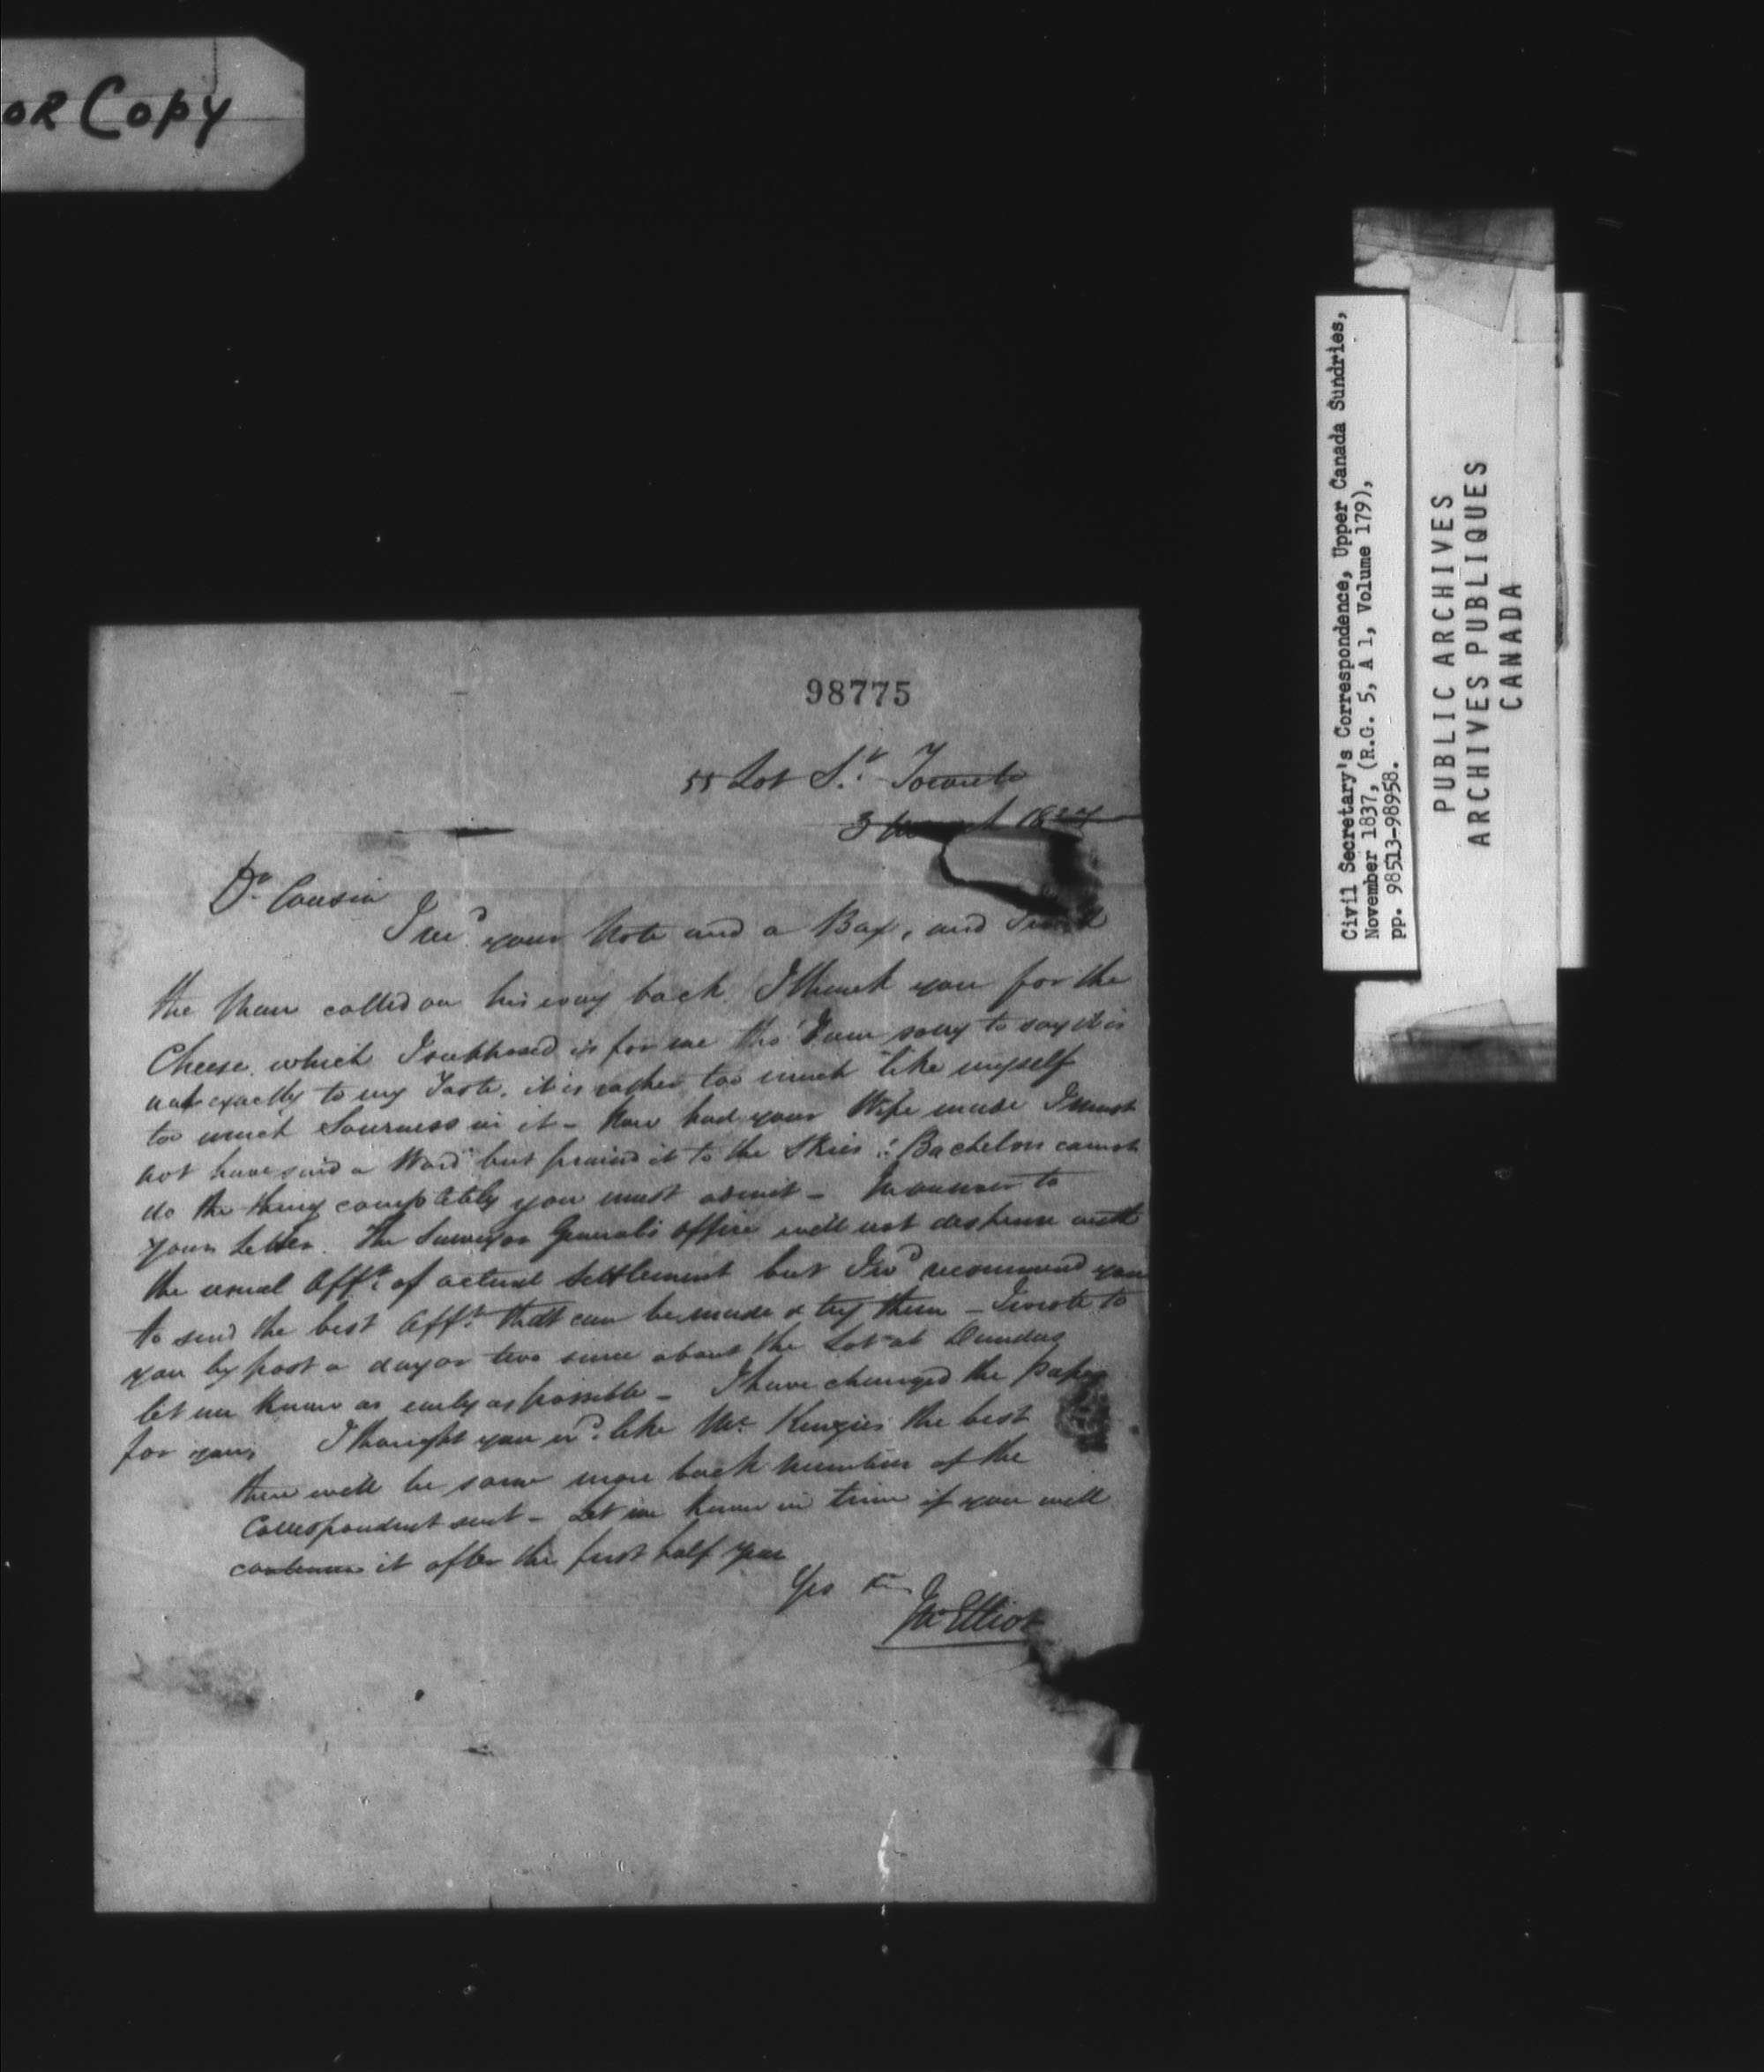 OR Copy
98775
55 Lot St. Toronto
3 1837
Dr Cousin
I recd your Note and a Box, and
the Man called on his way back. I thank you for the
Cheese, which I supposed is for me tho' I am sorry to say it is
not exactly to my Taste, it is rather too much like myself
too much Sourness in it - Now had your Wife made I must
not have said a Word but praised it to the Skies. Bachelors cannot
do the thing completely you must admit - In answer to
your Letter. The Surveyor General's office will not dispense with
the usual Afft. of actual Settlement but I wd recommend you
to send the best Afft. that can be made & try them - I wrote to
you by post a day or two since about the Lot at Dundas
let me know as early as possible - I have changed the Paper
for yours I thought you wd. like McKenzies the best
there will be some more back numbers of the
Correspondent sent - Let me know in time if you will
continue it after the first half year
Yrs
Elliot
Civil Secretary's Correspondence, Upper Canada Sundries,
November 1837, (R.G. 5, A 1, Volume 179),
pp. 98513-98958.
PUBLIC ARCHIVES
ARCHIVES PUBLIQUES
CANADA